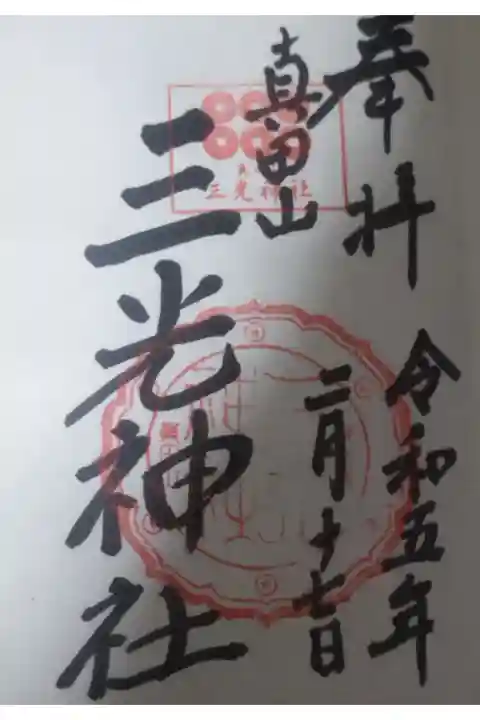 奉拝
令和五年
二月十七日
真田山
三光神社
三光神社